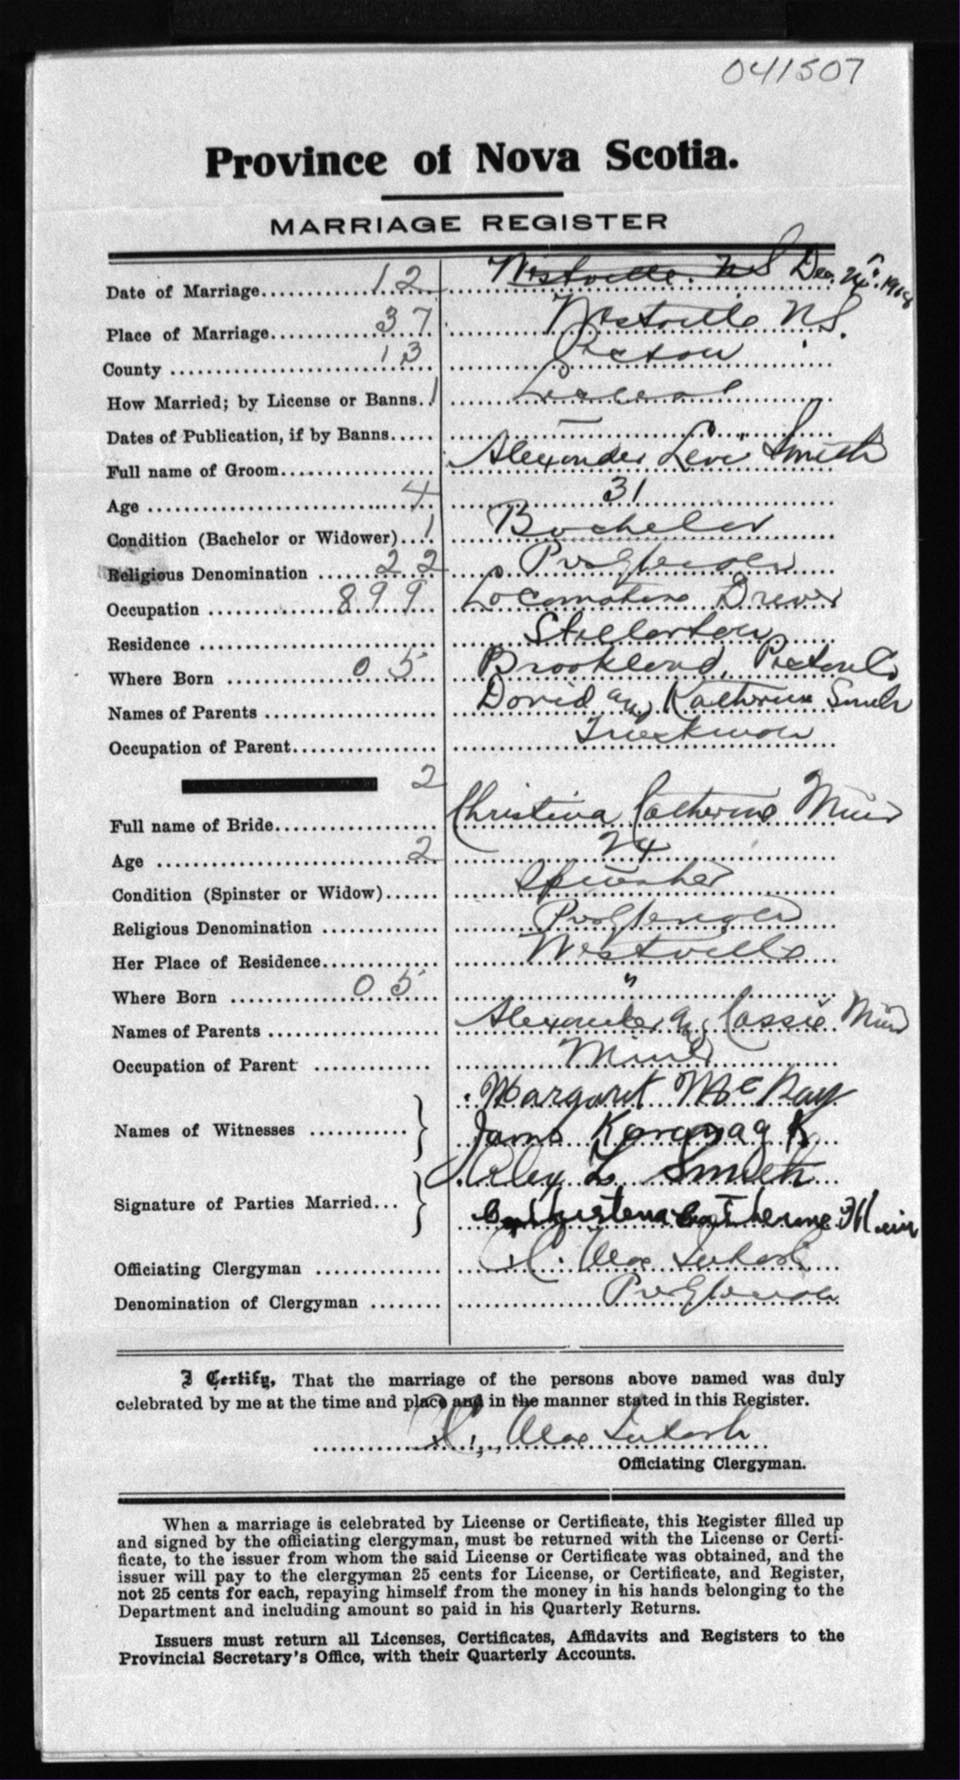 041507
Province of Nova Scotia.
MARRIAGE REGISTER
Date of Marriage 12 Westville. NS Dec.
Place of Marriage 37 Westville NS.
County 13 Pictou
How Married; by License or Banns 1 License
Dates of Publication, if by Banns —
Full name of Groom Alexander Levi Smith
Age 4 31
Condition (Bachelor or Widower) 1 Bachelor
Religious Denomination 22 Presbyterian
Occupation 899 Locomotive Driver
Residence Stellarton
Where Born 05 Brookland, Pictou Co
Names of Parents David and Katherine Smith
Occupation of Parent
2
Full name of Bride Christina Catherine Muir
Age 2 24
Condition (Spinster or Widow) Spinster
Religious Denomination Presbyterian
Her Place of Residence Westville
Where Born 05 "
Names of Parents Alexander and Cassie Muir
Occupation of Parent Miner
Margaret McKay
Names of Witnesses James
Alex L Smith
Signature of Parties Married Christena Catherine Muir
Officiating Clergyman
Denomination of Clergyman Presbyterian
I Certify, That the marriage of the persons above named was duly
celebrated by me at the time and place and in the manner stated in this Register.
Officiating Clergyman.
When a marriage is celebrated by License or Certificate, this Register filled up
and signed by the officiating clergyman, must be returned with the License or Certi-
ficate, to the issuer from whom the said License or Certificate was obtained, and the
issuer will pay to the clergyman 25 cents for License, or Certificate, and Register,
not 25 cents for each, repaying himself from the money in his hands belonging to the
Department and including amount so paid in his Quarterly Returns.
Issuers must return all Licenses, Certificates, Affidavits and Registers to the
Provincial Secretary's Office, with their Quarterly Accounts.